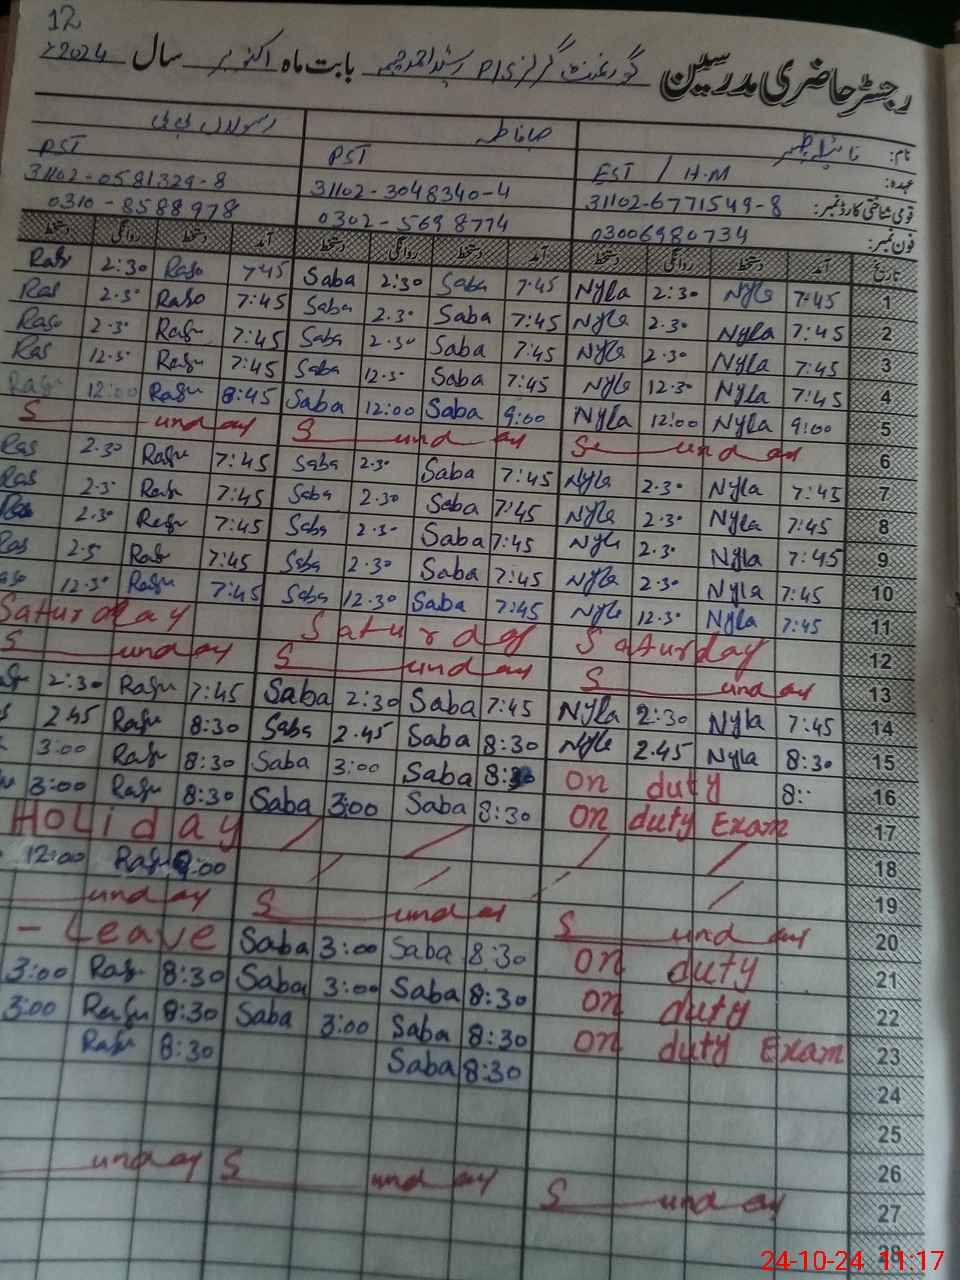 12
رجسٹر حاضری مدرسین گورنمنٹ گرلز P/S بابت ماہ اکتوبر سال 2024
نام:
عہدہ: EST / H.M PST PST
قومی شناختی کارڈ نمبر: 31102-6771549-8 31102-3048340-4 31102-0581329-8
فون نمبر: 03006980734 0302-5698774 0310-8588978
تاریخ آمد دستخط روانگی دستخط آمد دستخط روانگی دستخط آمد دستخط روانگی دستخط
1 7:45 Nyla 2:30 Nyla 7:45 Saba 2:30 Saba 7:45 2:30
2 7:45 Nyla 2:30 Nyla 7:45 Saba 2:30 Saba 7:45 2:30
3 7:45 Nyla 2:30 Nyla 7:45 Saba 2:30 Saba 7:45 2:30
4 7:45 Nyla 12:30 Nyla 7:45 Saba 12:30 Saba 7:45 12:30
5 9:00 Nyla 12:00 Nyla 9:00 Saba 12:00 Saba 8:45 12:00
6 Sunday Sunday Sunday
7 7:45 Nyla 2:30 Nyla 7:45 Saba 2:30 Saba 7:45 2:30
8 7:45 Nyla 2:30 Nyla 7:45 Saba 2:30 Saba 7:45 2:30
9 7:45 Nyla 2:30 Nyla 7:45 Saba 2:30 Saba 7:45 2:30
10 7:45 Nyla 2:30 Nyla 7:45 Saba 2:30 Saba 7:45
11 7:45 Nyla 12:30 Nyla 7:45 Saba 12:30 Saba 7:45 12:30
12 Saturday Saturday Saturday
13 Sunday Sunday Sunday
14 7:45 Nyla 2:30 Nyla 7:45 Saba 2:30 Saba 7:45 2:30
15 8:30 Nyla 2.45 Nyla 8:30 Saba 2.45 Saba 8:30 2.45
16 8: On duty 8:30 Saba 3:00 Saba 8:30 3:00
17 On duty Exam 8:30 Saba 3:00 Saba 8:30 3:00
18 HOLiday
19 9:00 12:00
20 Sunday Sunday Sunday
21 On duty 8:30 Saba 3:00 Saba - Leave
22 On duty 8:30 Saba 3:00 Saba 8:30 3:00
23 On duty Exam 8:30 Saba 3:00 Saba 8:30 3:00
24 8:30 Saba 8:30
25
26
27 Sunday Sunday Sunday
28
24-10-24 11:17